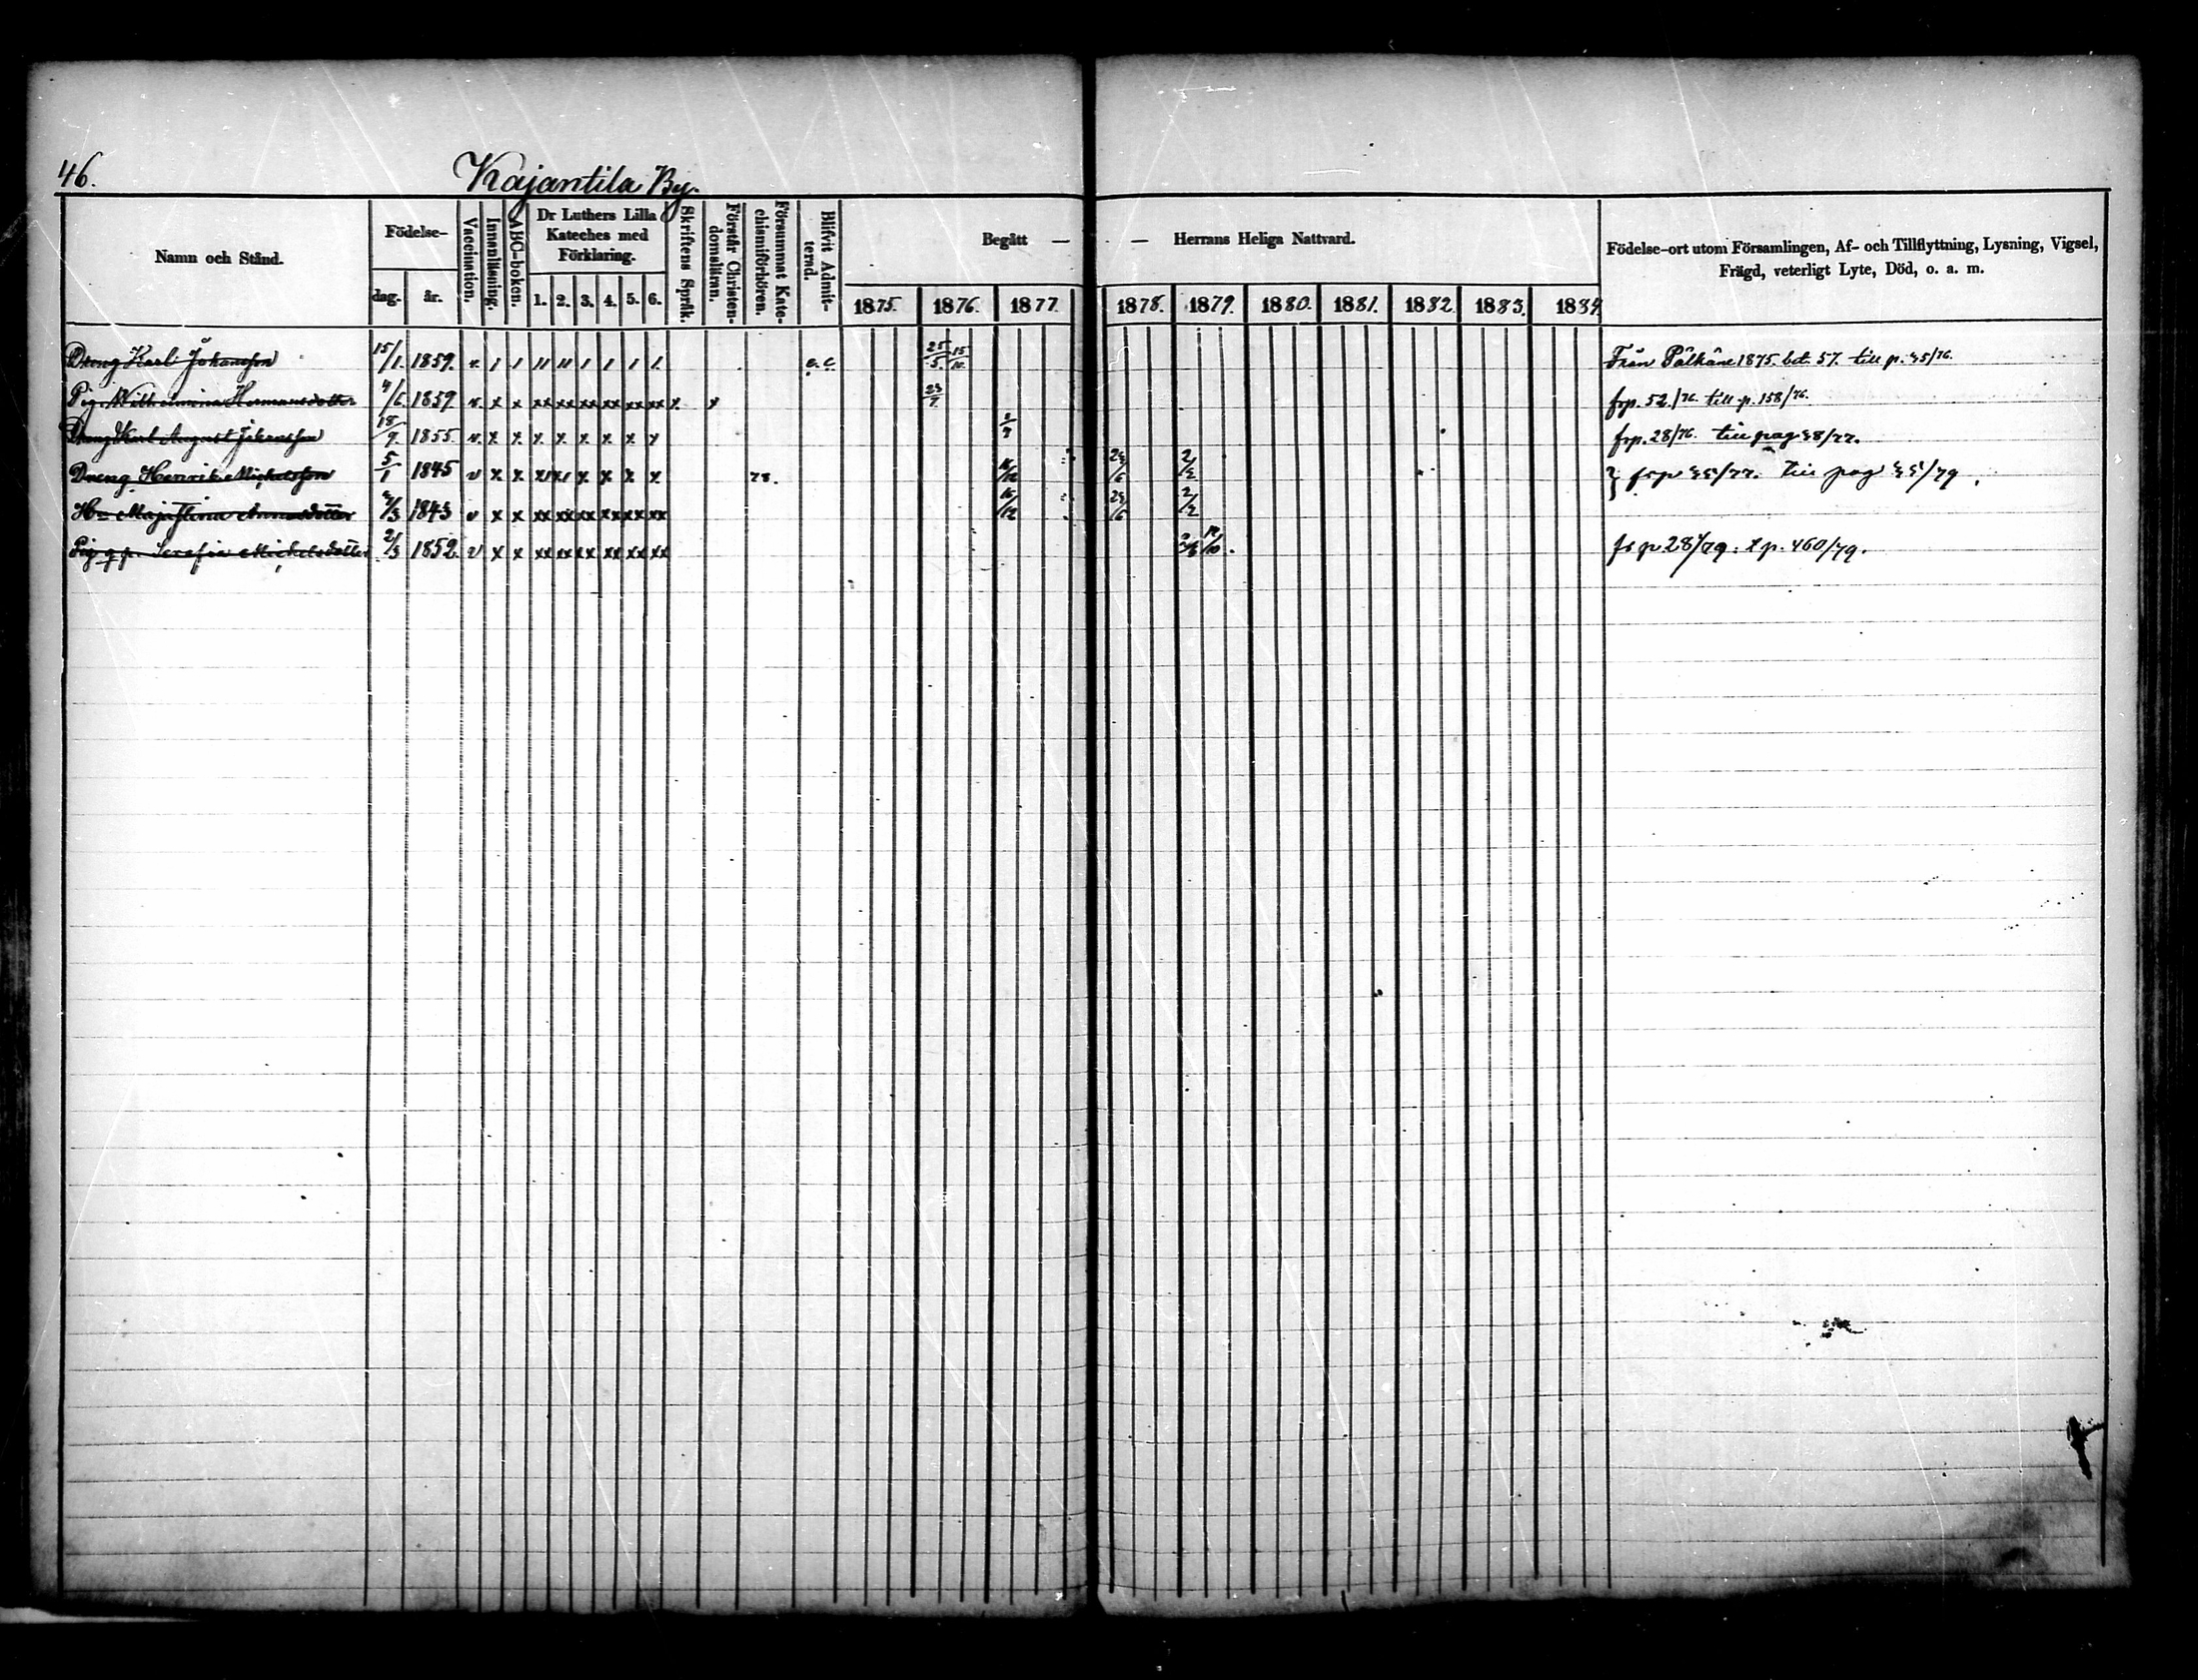 46. Kajantila By.
Namn och Stånd. Födelse- dag. år. Vaccination. Innanläsning. ABC-boken. Dr Luthers Lilla Kateches med Förklaring. 1. 2. 3. 4. 5. 6. Skriftens Språk. Förstår Christendomsläran. Försummat Katechismiförhören. Blifvit Admitterad. Begått — — Herrans Heliga Nattvard. 1875. 1876. 1877. 1878. 1879. 1880. 1881. 1882. 1883. 1884. Födelse-ort utom Församlingen, Af- och Tillflyttning, Lysning, Vigsel, Frägd, veterligt Lyte, Död, o. a. m.
Dreng Karl Johansson 15/1. 1859. v. 1 1 11 11 1 1 1 1. a. c. 25/5. 15/10. Från Pälkäne 1875. bet. 57. till p. 45/76.
Pig. Wilhelmina Hermansdotter 1859. v. x x xx xx xx xx xx xx x. x frp. 52./76. till p. 158/76.
Dreng Karl August Johansson 18/9. 1855. v. x x x x x x x x frp. 28/76. till pag 48/77.
Dreng Henrik Michelsson 5/1 1845 v x x x x x x 78. 16/12 24/6 2/2 } frp 45/77. till pag 45/79.
Hu Maja Stina Annasdotter 1843 v x x xx xx xx xx xx xx 16/12 24/6 2/2
Pig q. p. Serafia Michelsdotter 2/3 1852. v x x xx xx xx xx xx xx 12/10. fr p 28/79. t p. 460/79.